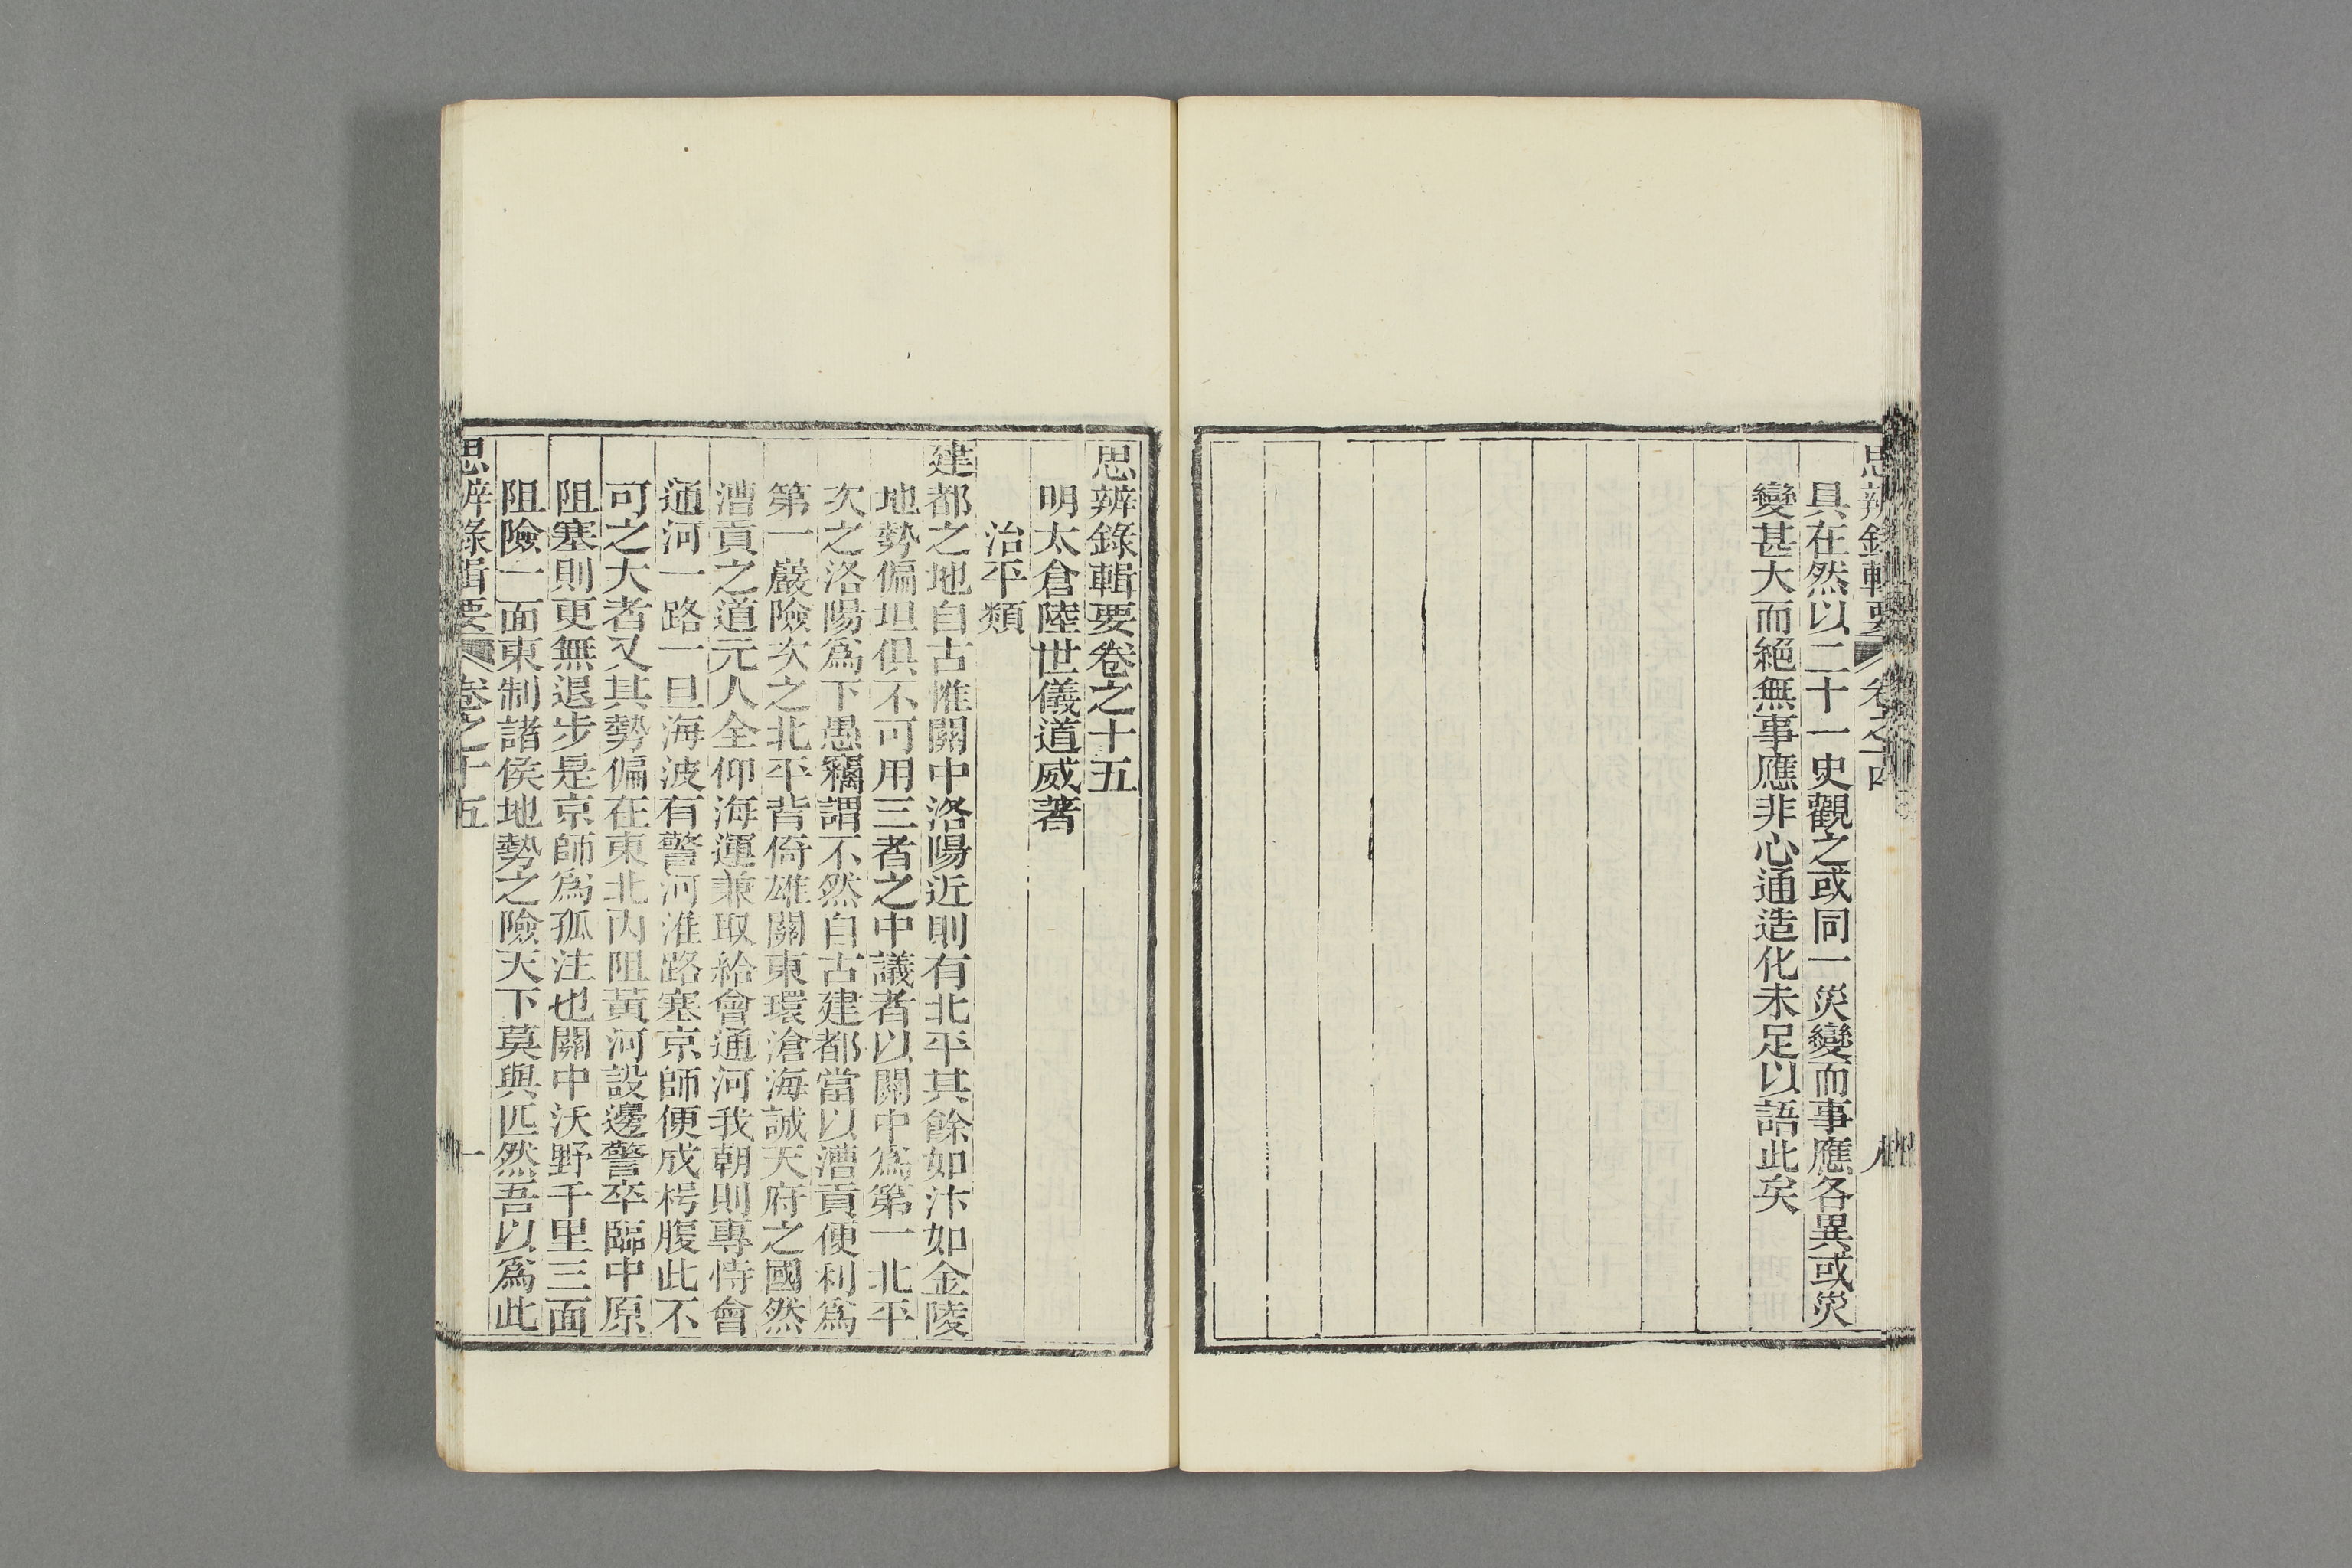 思辨錄輯要 卷之十四 八
具在然以二十一史觀之或同一災變而事應各異或災
變甚大而絕無事應非心通造化未足以語此矣
思辨錄輯要卷之十五
明太倉陸世儀道威著
治平類
建都之地自古惟關中洛陽近則有北平其餘如汴如金陵
地勢偏坦俱不可用三者之中議者以關中為第一北平
次之洛陽為下愚竊謂不然自古建都當以漕貢便利為
第一嚴險次之北平背倚雄關東環滄海誠天府之國然
漕貢之道元人全仰海運兼取給會通河我朝則專恃會
通河一路一旦海波有警河淮路塞京師便成枵腹此不
可之大者又其勢偏在東北內阻黃河設邊警卒臨中原
阻塞則更無退步是京師為孤注也關中沃野千里三面
阻險一面東制諸侯地勢之險天下莫與匹然吾以為此
思辨錄輯要 卷之十五 一